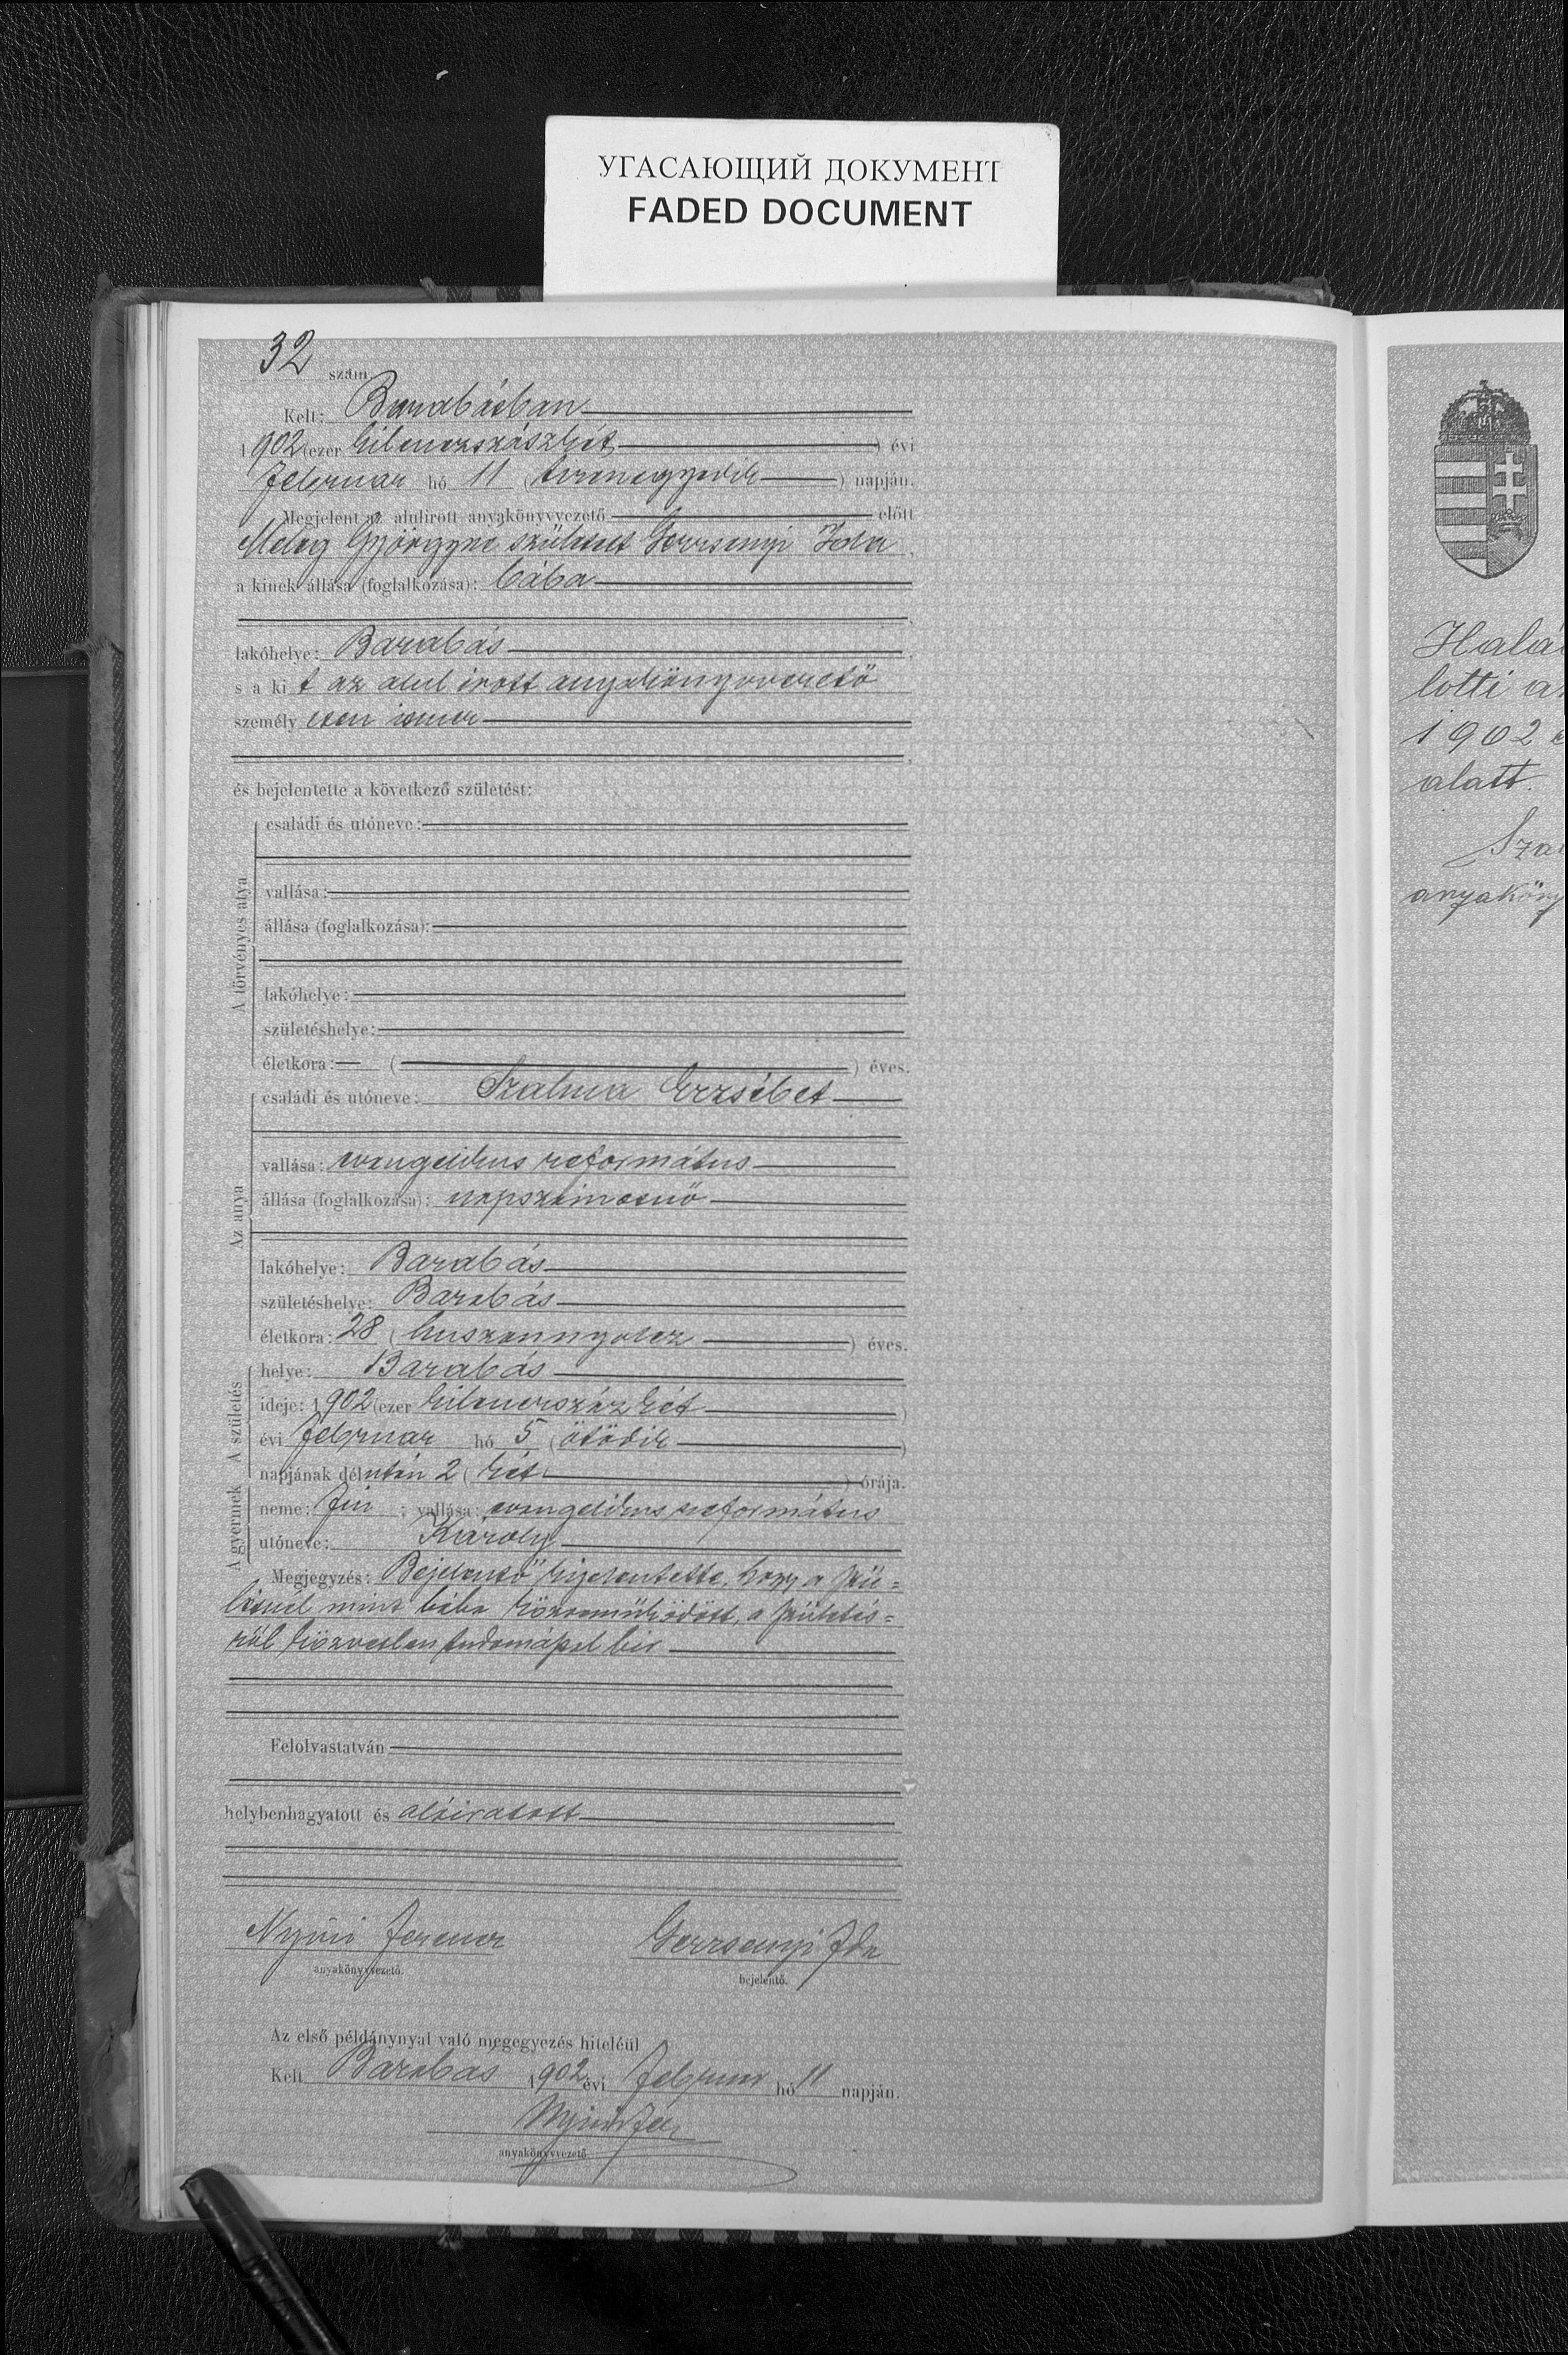 УГАСАЮЩИЙ ДОКУМЕНТ
FADED DOCUMENT
32 szám.
Kelt: Barabásban
1902 (ezer kilenczszázkét) évi
februar hó 11 (tizenegyedik) napján.
Megjelent az alulirott anyakönyvvezető előtt
Meleg Györgyné született Gerzsenyi Ida,
a kinek állása (foglalkozása): bába
lakóhelye: Barabás,
s a kit az alul irott anyakönyvvezető
személyesen ismer
és bejelentette a következő születést:
A törvényes atya
családi és utóneve:
vallása:
állása (foglalkozása):
lakóhelye:
születéshelye:
életkora: ( ) éves.
Az anya
családi és utóneve: Szalma Erzsébet
vallása: evangelikus református
állása (foglalkozása): napszámosnő
lakóhelye: Barabás
születéshelye: Barabás
életkora: 28 (huszonnyolcz) éves.
A születés
helye: Barabás
ideje: 1902 (ezer kilenczszázkét)
évi februar hó 5 (ötödik)
napjának délután 2 (két) órája.
A gyermek
neme: fiú; vallása: evangelikus református
utóneve: Károly
Megjegyzés: Bejelentő kijelentette, hogy a szü=
lésnél mint bába közreműködött, a születés=
ről közvetlen tudomással bir
Felolvastatván
helybenhagyatott és aláiratott
Nyiri Ferencz Gerzsenyi Ida
anyakönyvvezető. bejelentő.
Az első példánynyal való megegyezés hiteléül
Kelt Barabás 1902 évi februar hó 11 napján.
anyakönyvvezető
Halá
lotti a
1902
alatt.
Sza
anyaköny